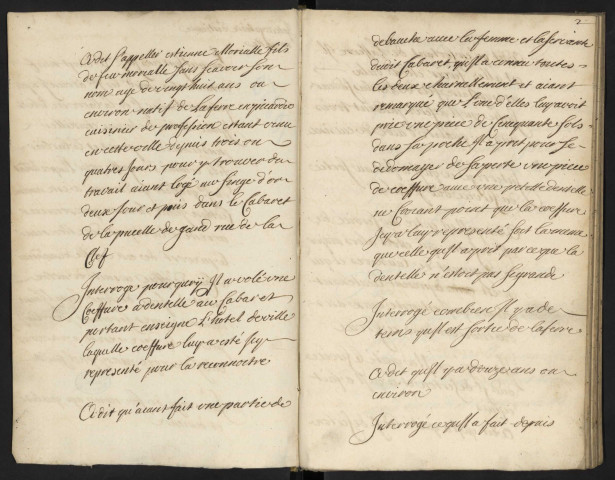 A dit s'appeller estienne Morialle fils
de feu morialle sans scavoir son
nom age de vingt huit ans ou
environ natif de Laferre en picardie
cuisinier de profession estant venu
en cette ville depuis trois ou
quatre jours pour y trouver du
travail aiant logé au singe d'or
deux jour et puis dans le Cabaret
de la pucelle de gand rue de la
Clef
Interroge pourquoy Il a volé une
Coeffure a dentelle au Cabaret
portant enseigne L'hotel de ville
laquelle coeffure luy a esté icy
representé pour la reconnoitre
A dit qu'aiant fait une partie de
2
debauche avec la femme et la servante
dudit Cabaret, qu'Il a connu toutes
les deux charnellement et aiant
remarqué que L'une d'elles luy avoit
pris une piece de Cinquante sols
dans sa poche Il a prit pour se
dedomager de sa perte une piece
de coeffure avec une petitte dentelle
ne Croiant point que la coeffure
icy a luy representé soit la mesme
que celle qu'Il a prit parce que la
dentelle n'estoit pas si grande
Interrogé combien Il y a de
tems qu'Il est sortie de Laferre
A dit qu'Il y a douze ans ou
environ
Interrogé ce qu'Il a fait depuis